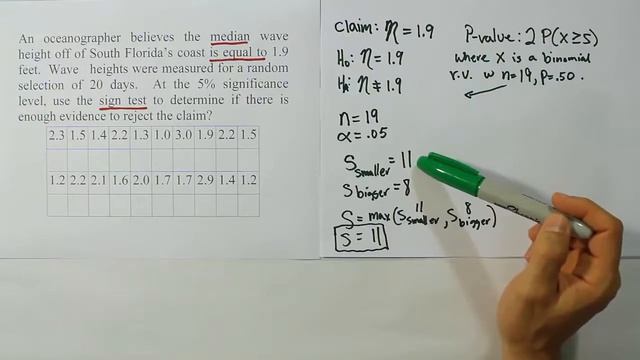 An oceanographer believes the median wave
height off of South Florida's coast is equal to 1.9
feet. Wave heights were measured for a random
selection of 20 days. At the 5% significance
level, use the sign test to determine if there is
enough evidence to reject the claim?
2.3 1.5 1.4 2.2 1.3 1.0 3.0 1.9 2.2 1.5
1.2 2.2 2.1 1.6 2.0 1.7 1.7 2.9 1.4 1.2
Claim: η = 1.9
H₀: η = 1.9
Hₐ: η ≠ 1.9
n = 19
α = .05
S smaller = 11
S bigger = 8
11 8
S = max(S smaller, S bigger)
S = 11
P-value: 2 P(X ≥ S)
where X is a binomial
r.v. w n=19, p=.50.